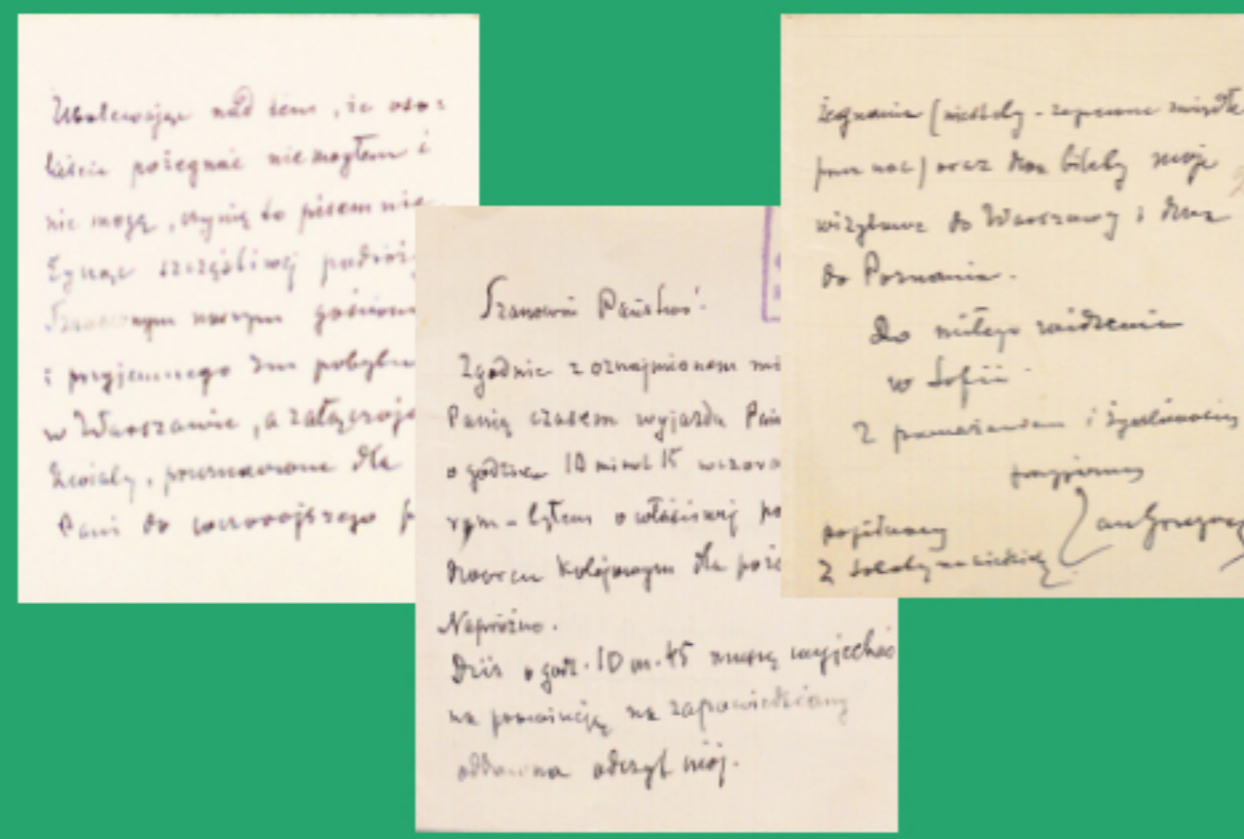 Ubolewając nad tem, że oso-
biście pożegnać nie mogłem i
nie mogę, czynię to pisemnie
życząc szczęśliwej podróż
Szanownym naszym gościom
i przyjemnego Im pobytu
w Warszawie, a załączając
kwiaty, przeznaczone dla
Pani do wczorajszego p
Szanowni Państwo!
Zgodnie z oznajmionem mi
Panią czasem wyjazdu Pań
o godzinie 10 minut 15 wczora
rym - byłem o właściwej po
dworcu kolejowym dla poże
Napróżno.
Dziś o godz. 10 m. 45 muszę wyjechać
na prowincję na zapowiedziany
oddawna odczyt mój.
żegnania (niestety - zapewne zwiędłe
przez noc) oraz dwa bilety moje
wizytowe do Warszawy i dwa
do Poznania.
Do miłego widzenia
w Sofii.
Z poważaniem i życzliwością
przyjazną
Jan Grzegorz